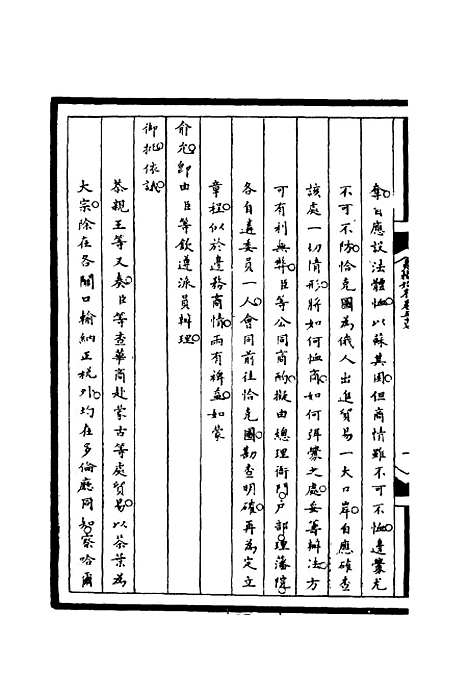 奪自應設法體恤以蘇其困但商情雖不可不恤邊釁尤
不可不防恰克圖為俄人出進貿易一大口岸自應確查
該處一切情形將如何恤商如何弭釁之處妥籌辦法方
可有利無弊臣等公同商酌擬由總理衙門戶部理藩院
各自遣委員一人會同前往恰克圖勘查明確再為定立
章程似於邊務商情兩有裨益如蒙
俞允即由臣等欽遵派員辦理
御批依議
恭親王等又奏臣等查華商赴蒙古等處貿易以茶葉為
大宗除在各關口輸納正稅外均在多倫廳同知察哈爾